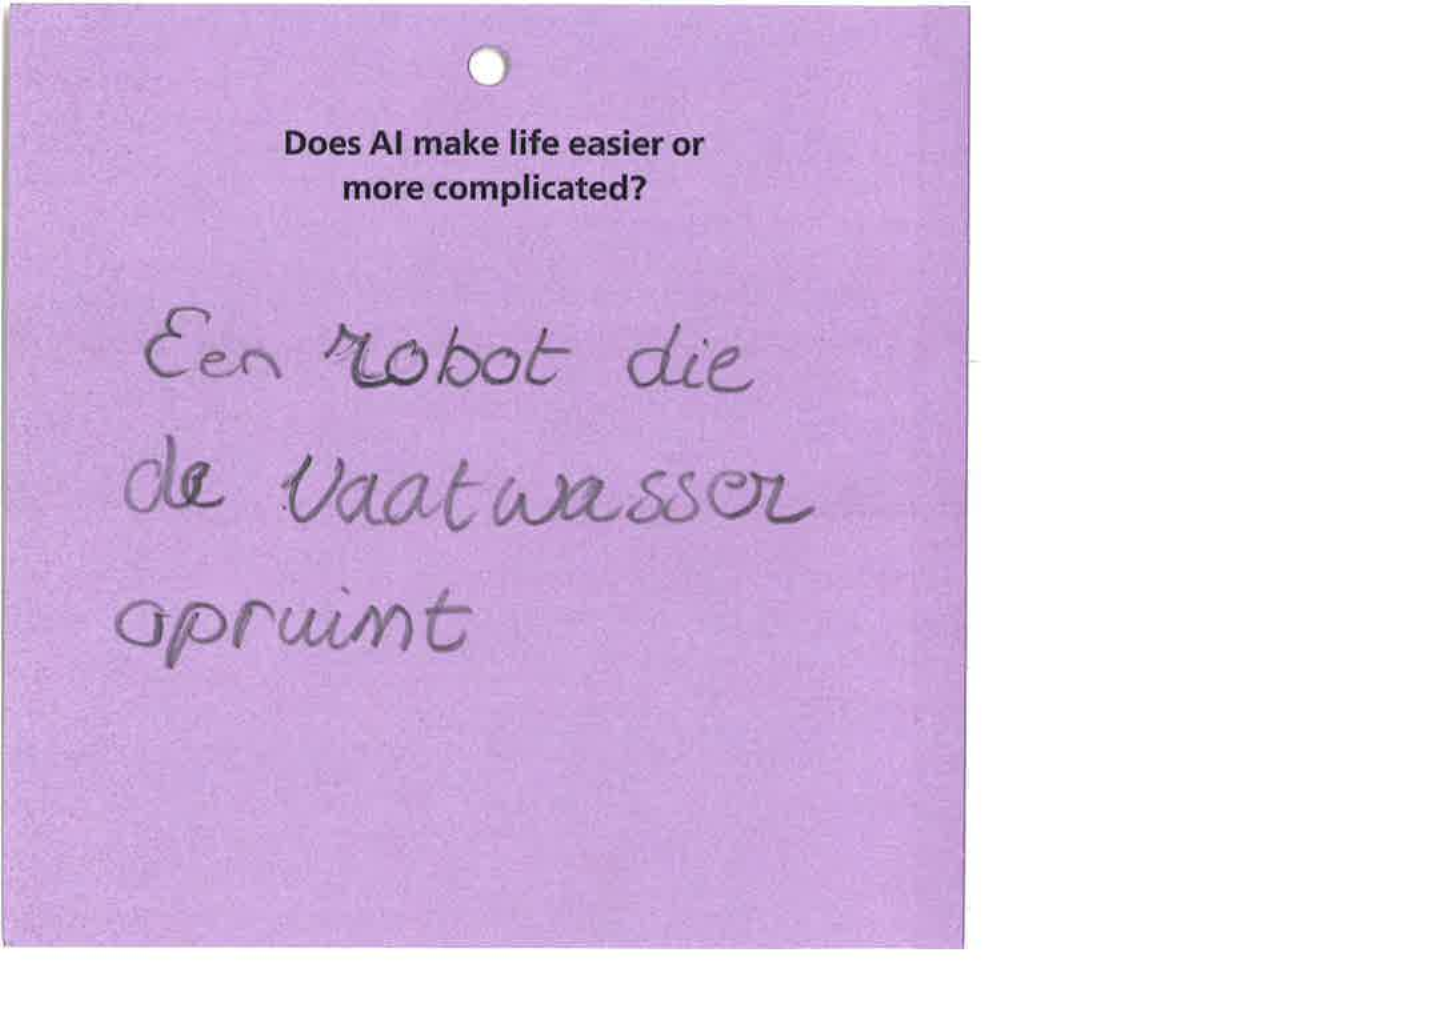 Does AI make life easier or
more complicated?
Een robot die
de vaatwasser
opruimt